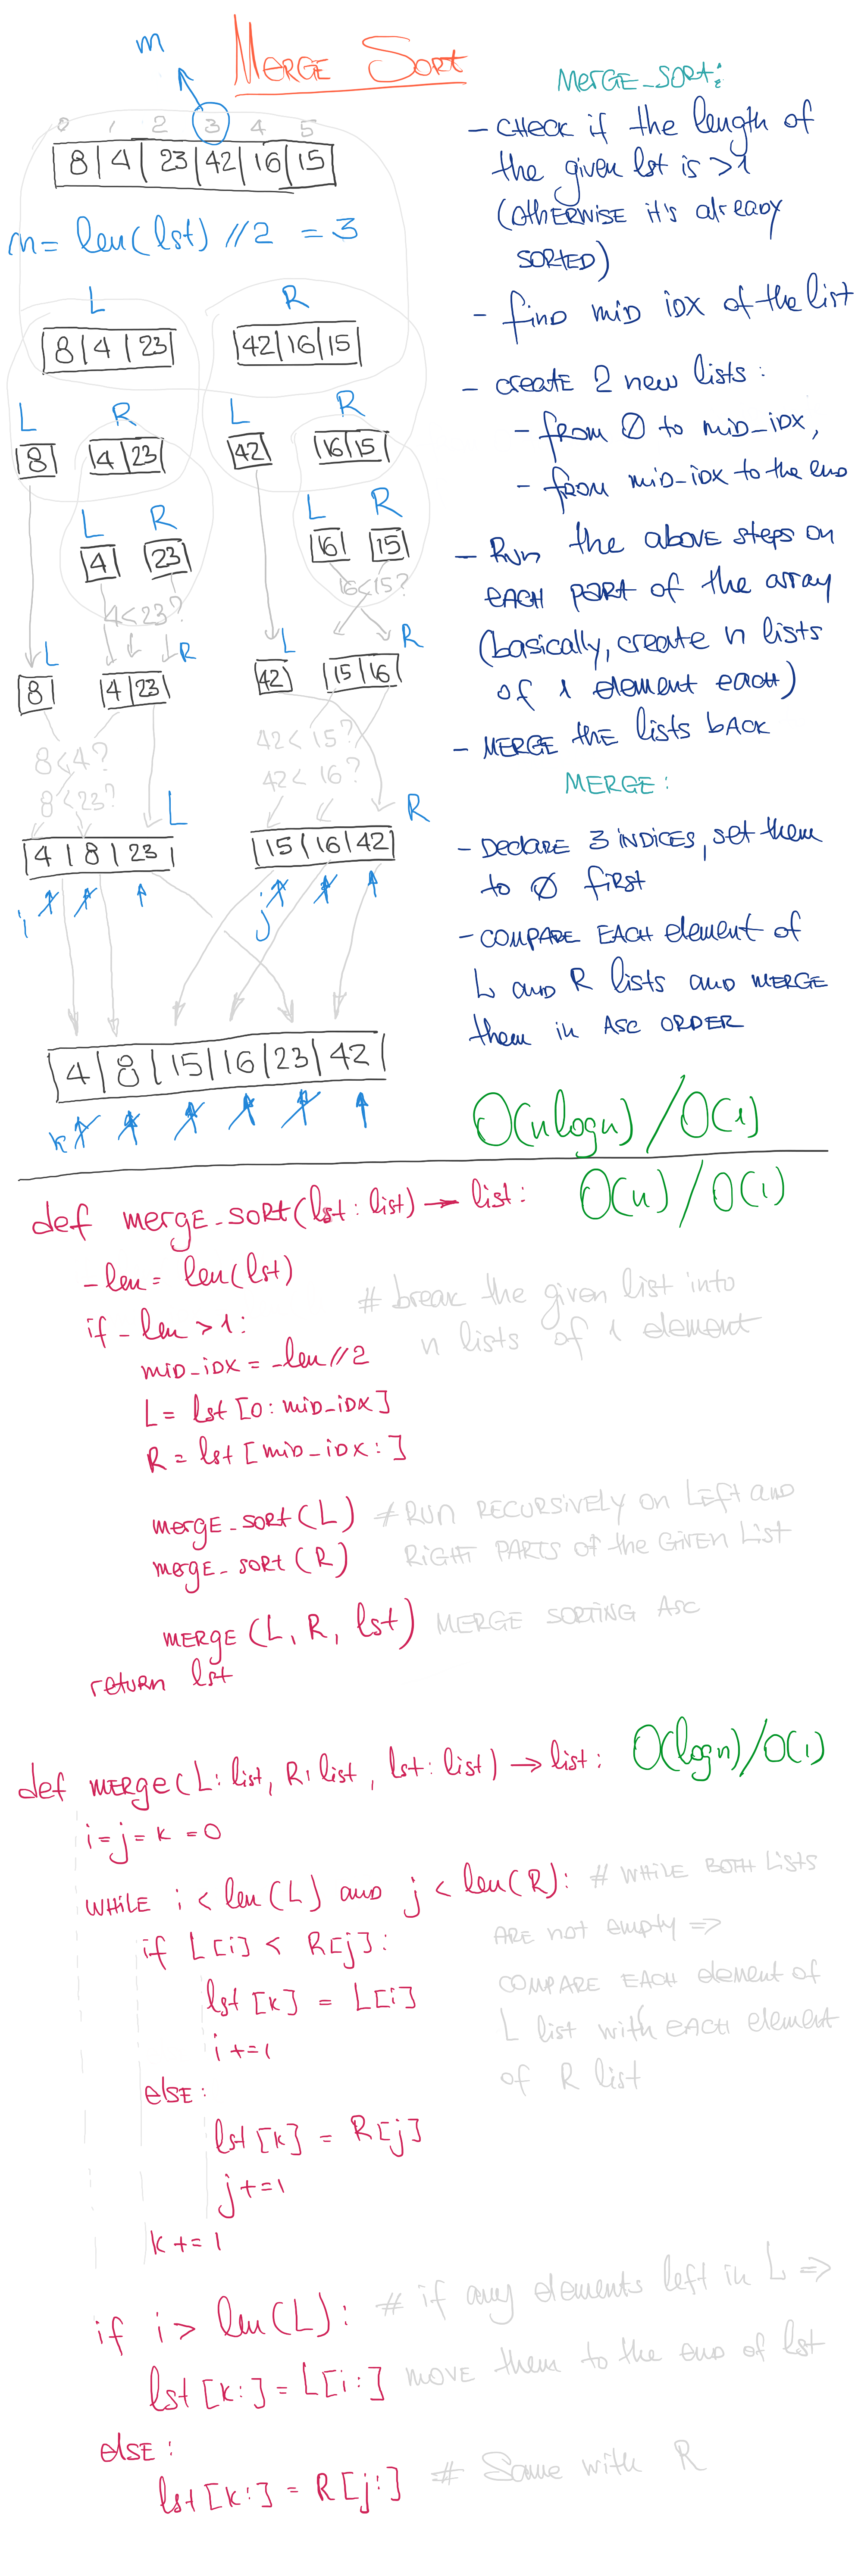 m
MERGE SORT
0 1 2 3 4 5
8 | 4 | 23 | 42 | 16 | 15
m = len(lst) // 2 = 3
L R
8 | 4 | 23 42 | 16 | 15
L R L R
8 4 | 23 42 16 | 15
L R L R
4 23 16 15
4 < 23? 16 < 15?
L R L R
8 4 | 23 42 15 | 16
8 < 4? 42 < 15?
8 < 23? 42 < 16?
L R
4 | 8 | 23 15 | 16 | 42
i j
4 | 8 | 15 | 16 | 23 | 42
k
MERGE_SORT:
- CHECK if the length of
the given lst is >1
(OTHERWISE it's already
SORTED)
- find mid idx of the list
- create 2 new lists:
- from 0 to mid_idx,
- from mid-idx to the end
- Run the above steps on
EACH PART of the array
(basically, create n lists
of 1 element each)
- MERGE the lists back
MERGE:
- Declare 3 INDICES, set them
to 0 first
- COMPARE EACH element of
L and R lists and MERGE
them in ASC ORDER
O(nlogn) / O(1)
def merge_sort(lst: list) → list: O(n) / O(1)
_len = len(lst)
if _len > 1: # break the given list into
n lists of 1 element
mid_idx = _len // 2
L = lst [0: mid_idx]
R = lst [mid_idx:]
merge_sort(L) # RUN RECURSIVELY on Left and
merge_sort(R) RIGHT PARTS of the GIVEN List
merge (L, R, lst) MERGE SORTING ASC
return lst
def merge(L: list, R: list, lst: list) → list: O(logn)/O(1)
i = j = k = 0
WHILE i < len(L) and j < len(R): # WHILE BOTH Lists
ARE not empty =>
if L[i] < R[j]:
COMPARE EACH element of
lst [k] = L[i]
L list with EACH element
i += 1
of R list
else:
lst [k] = R[j]
j += 1
k += 1
if i > len(L): # if any elements left in L =>
lst [k:] = L[i:] MOVE them to the end of lst
else:
lst [k:] = R[j:] # Same with R